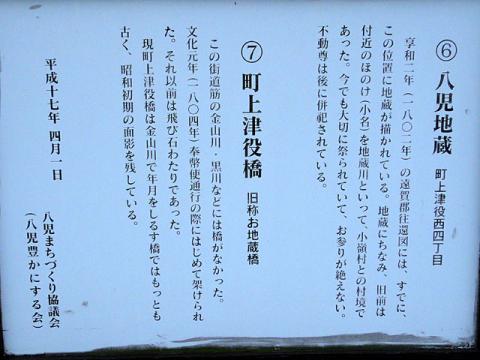 ⑥ 八児地蔵 町上津役西四丁目
享和二年(一八〇二年)の遠賀郡往還図には、すでに、
この位置に地蔵が描かれている。地蔵にちなみ、旧前は
付近のほのけ(小名)を地蔵川といって、小嶺村との村境で
あった。今でも大切に祭られていて、お参りが絶えない。
不動尊は後に併祀されている。
⑦ 町上津役橋 旧称お地蔵橋
この街道筋の金山川・黒川などには橋がなかった。
文化元年(一八〇四年)奉幣使通行の際にはじめて架けられ
た。それ以前は飛び石わたりであった。
現町上津役橋は金山川で年月をしるす橋ではもっとも
古く、昭和初期の面影を残している。
平成十七年 四月一日
八児まちづくり協議会
(八児豊かにする会)